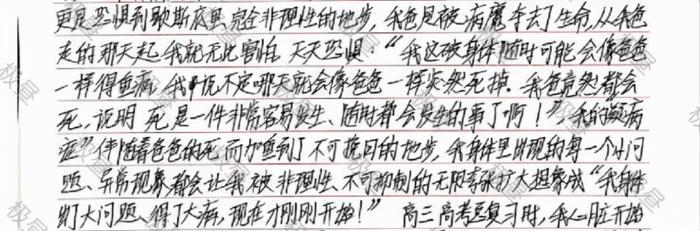 更是恐惧到歇斯底里、完全非理性的地步，我爸是被病魔夺去了生命，从我爸
走的那天起，我就无比害怕、天天恐惧：“我这破身体随时可能会像爸爸
一样得重病，我说不定哪天就会像爸爸一样突然死掉。我爸竟然都会
死，说明 死是一件非常容易发生、随时都会发生的事了啊！”，我的“疑病
症”伴随着爸爸的死，而加重到了不可挽回的地步，我身体里出现的每一个小问
题、异常现象都会让我被非理性、不可抑制的无限夸张扩大想象成“我身体
出了大问题、得了大病，现在才刚刚开始！” 高三高考总复习时，我心脏开始
极昼
极昼
极昼
极昼